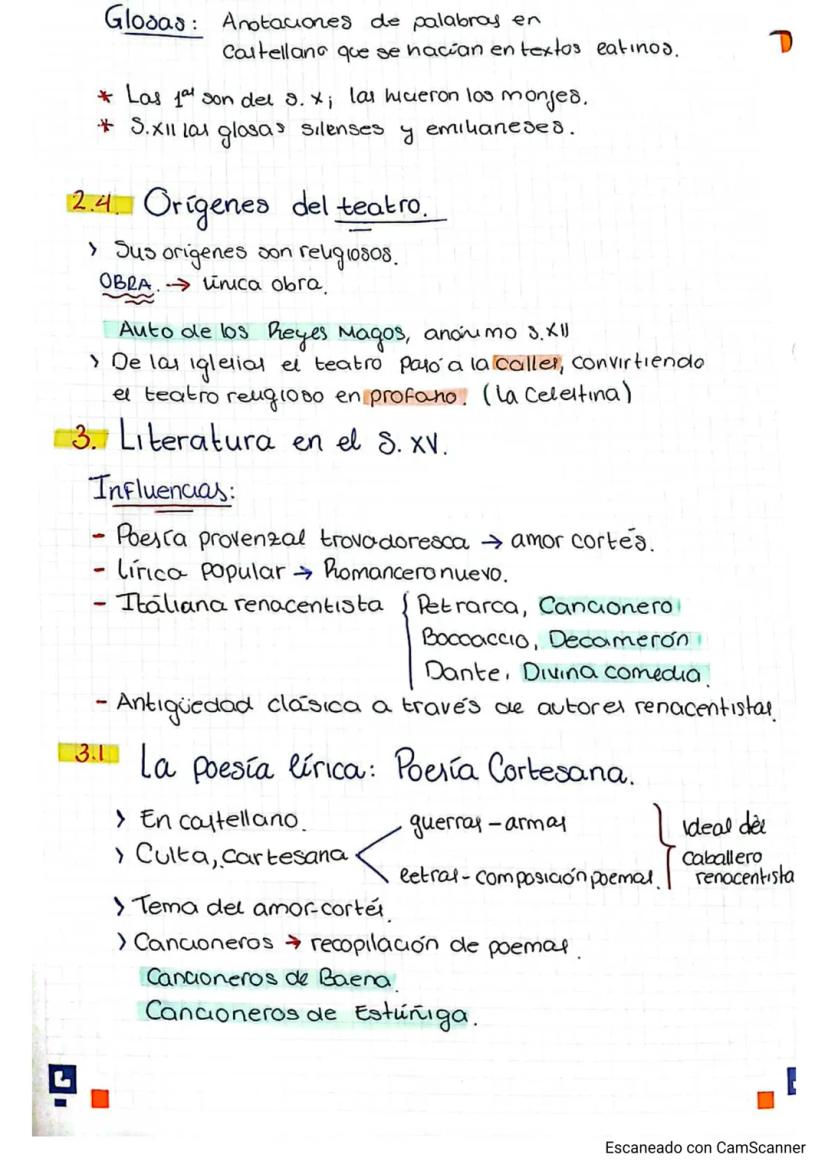 Glosas: Anotaciones de palabras en
castellano que se hacían en textos latinos.
* Las 1as son del S. X; las hicieron los monjes.
* S.XII las glosas silenses y emilianeses.
2.4. Orígenes del teatro.
> Sus orígenes son religiosos.
OBRA. → única obra.
Auto de los Reyes Magos, anónimo S.XII
> De las iglesias el teatro pasó a la calles, convirtiendo
el teatro religioso en profano. (La Celestina)
3. Literatura en el S. XV.
Influencias:
- Poesía provenzal trovadoresca → amor cortés.
- Lírica popular → Romancero nuevo.
- Itáliana renacentista { Petrarca, Cancionero
Boccaccio, Decamerón
Dante, Divina comedia.
- Antigüedad clásica a través de autores renacentistas.
3.1 La poesía lírica: Poesía Cortesana.
> En castellano.
> Culta, cartesana < guerras - armas
letras - composición poemas. } ideal del
caballero
renacentista
> Tema del amor-cortés.
> Cancioneros → recopilación de poemas.
Cancioneros de Baena.
Cancioneros de Estúñiga.
Escaneado con CamScanner